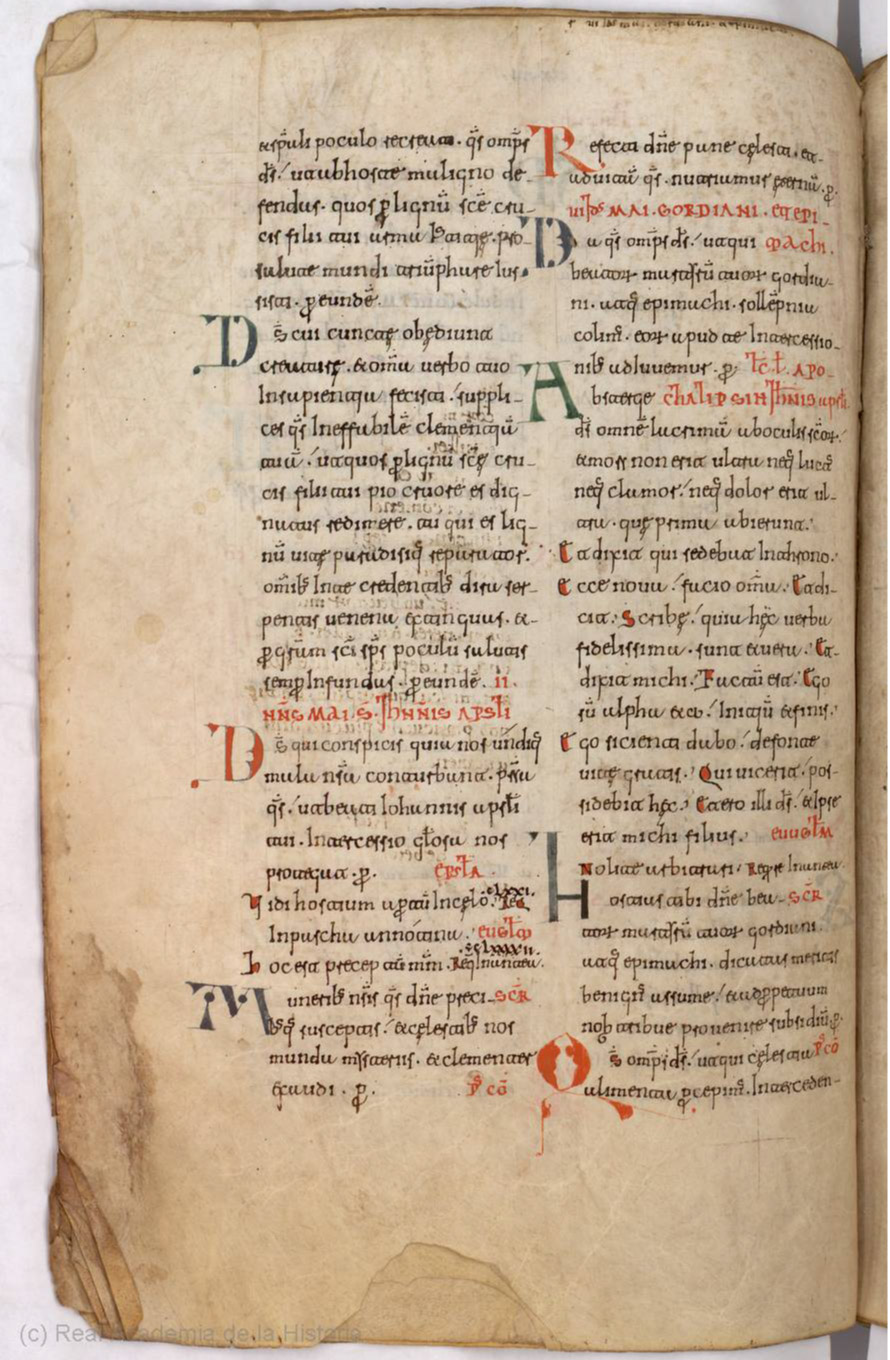 & spuli poculo recreas. qs omps
ds. ut ab hoste maligno de-
fendas. quos p lignū scē cru-
cis filii tui pro-
salute mundi triūphare ius-
sisti. p eundē.
Ds cui cuncte obediunt
creature. & omīa uerbo tuo
In sapientia fecisti. suppli-
ces qs Ineffabilē clementiā
tuā. ut quos p lignū scē cru-
cis filii tui pio cruore es dig-
natus redimere. tu qui es lig-
nū uite paradisiq reparator.
omīb In te credentib diri ser-
pentis uenena extinguas. &
p gram sci sps poculū salutis
semp Infundas. p eundē. II.
NNS MAI. S. IHNNIS APSTLI
Ds qui conspicis quia nos undiq
mala nsa conturbant. psta
qs. ut beati Iohannis apstli
tui. Intercessio glosa nos
protegat. p. EPSTLA
Vidi hostium aptū In celo. Req
In pascha annotina. EVGLM
Hoc est preceptū mm. Req
Munerib nsis qs dne preci- SCR
bsq susceptis. & celestib nos
munda misteriis. & clementer
exaudi. p. P CO
Refecti dne pane celesti. et
ad uitā qs. nutriamur eternā. p.
VI IDS MAI. GORDIANI. ET EPI-
Da qs omps ds. ut qui MACHI.
beator martirū tuor gordia-
ni. atq epimachi. sollēpnia
colim. eor apud te Intercessio-
nib adiuuemur. p. LC L. APO-
Absterget CALIPSIN IHNIS apstli
ds omnē lacrimā ab oculis scor.
& mors non erit ultra neq luct
neq clamor. neq dolor erit ul-
tra. que prima abierunt.
Et dixit qui sedebat In throno.
Ecce noua facio omīa. Et di-
cit. Scribe. quia hec uerba
fidelissima sunt & uera. Et
dixit michi. Factū est. Ego
sū alpha & ω. Initiū & finis.
Ego sitienti dabo. de fonte
uite gratis. Qui uicerit. pos-
sidebit hec. Et ero illi ds. & Ipse
erit michi filius. EVVGLM
Nolite arbitrari. Reqre In
Hostias tibi dne bea- SCR
tor martirū tuor gordiani.
atq epimachi. dicatas meritis
benign assume. & ad ppetuum
nob tribue prouenire subsidiū. p.
Qs omps ds. ut qui celestia P CO
alimenta pcepim. Interceden-